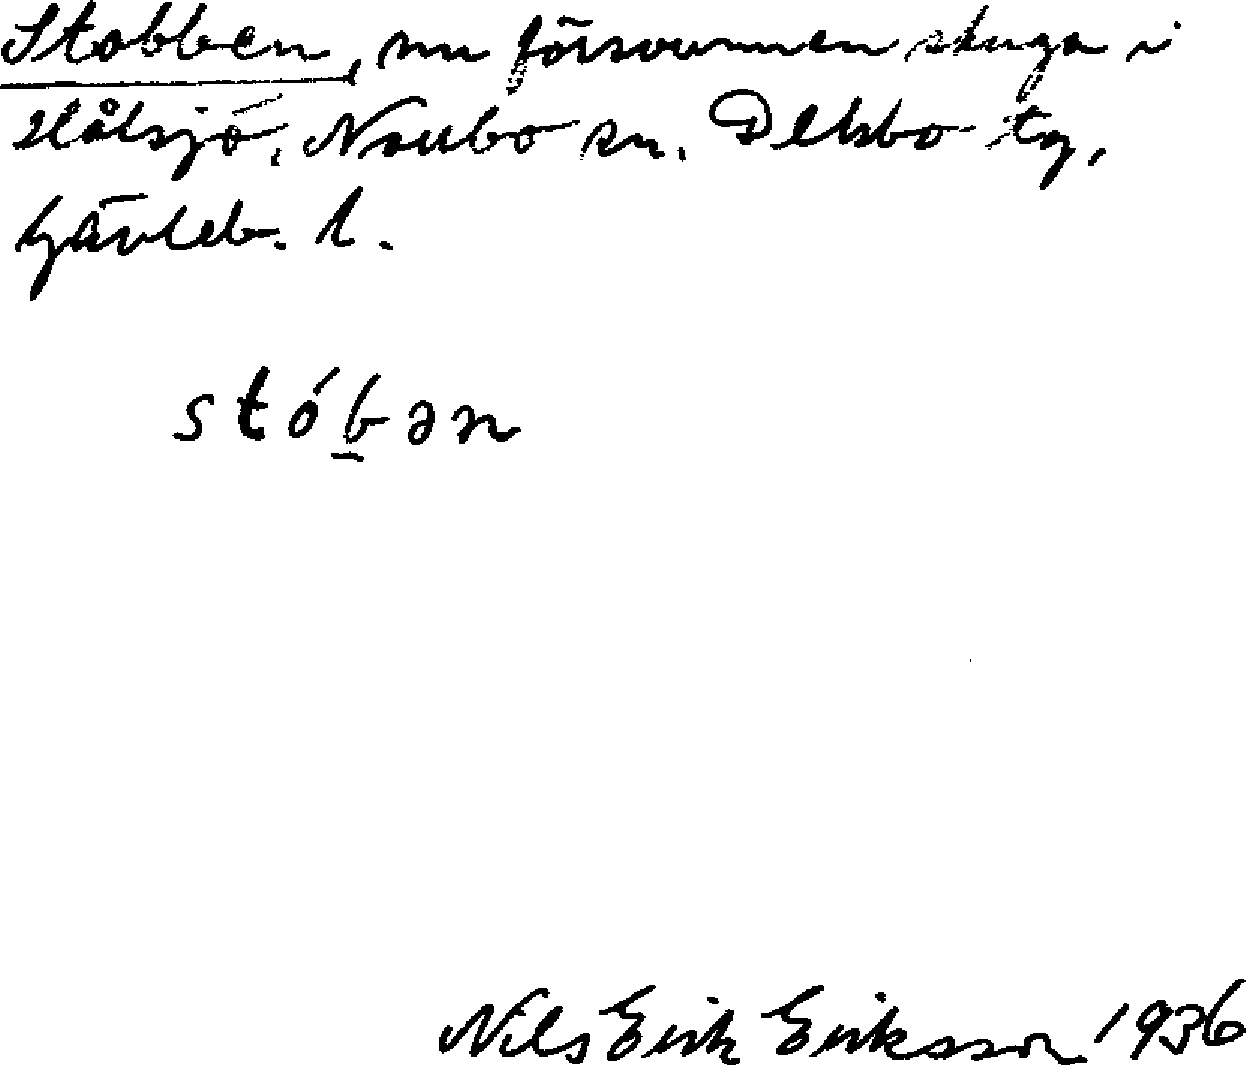 Stobben, nu försvunnen stuga i
Hålsjö, Norrbo sn. Delsbo tg,
Gävleb. l.
stób̲ən
Nils Erik Eriksson 1936